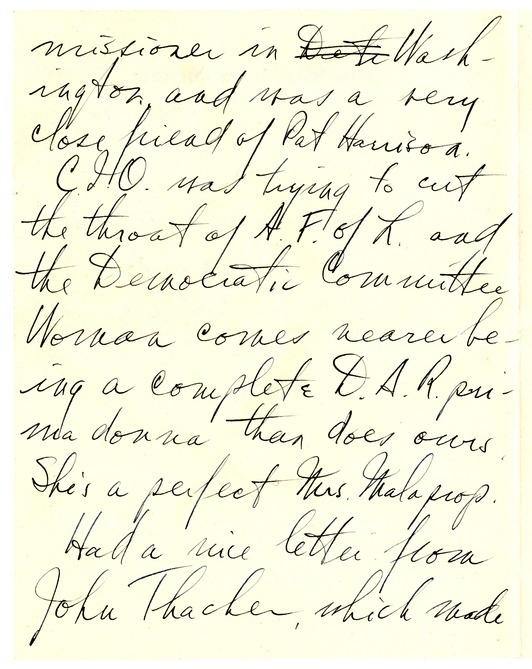 missioner in Wash-
ington, and was a very
close friend of Pat Harrison.
C.I.O. was trying to cut
the throat of A. F. of L. and
the Democratic Committee
Woman comes nearer be-
ing a complete D. A. R. pri-
ma donna than does ours.
She's a perfect Mrs. Malaprop.
Had a nice letter from
John Thacher, which made